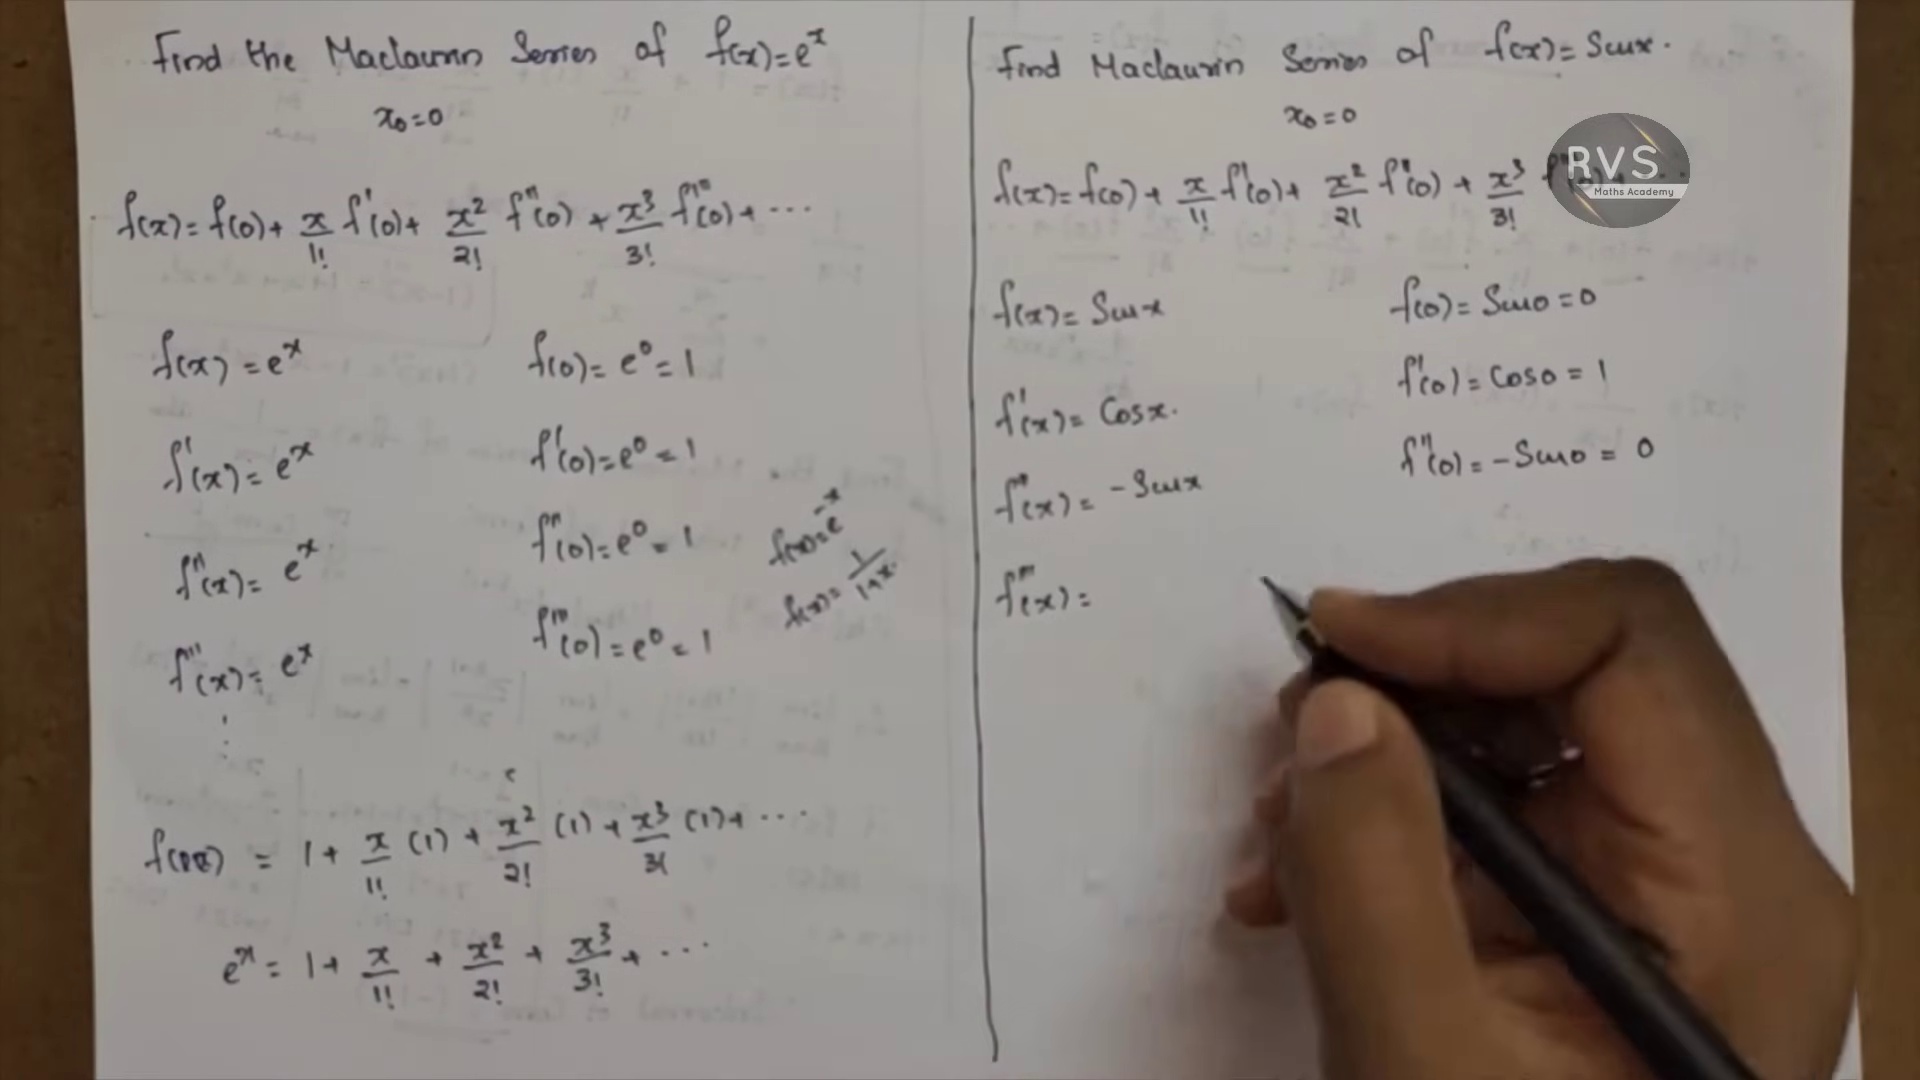 Find the Maclaurin Series of f(x)=e^x
x₀=0
f(x)=f(0)+ x/1! f'(0)+ x²/2! f''(0) + x³/3! f'''(0)+ ...
f(x) =e^x
f(0)= e⁰= 1
f'(x)= e^x
f'(0)=e⁰ = 1
f''(x)= e^x
f''(0)=e⁰ = 1
f'''(x)= e^x
f'''(0)=e⁰ = 1
f(x)=e^-x
f(x)= 1/1+x.
= 1+ x/1! (1) + x²/2! (1) + x³/3! (1)+ ...
e^x = 1+ x/1! + x²/2! + x³/3! + ...
Find Maclaurin Series of f(x)= Sinx.
x₀=0
f(x)=f(0)+ x/1! f'(0)+ x²/2! f''(0) + x³/3!
RVS
Maths Academy
f(x)= Sinx
f(0)= Sin0 =0
f'(x)= Cosx.
f'(0)= Cos0 = 1
f''(x)= -Sinx
f''(0)= -Sin0 = 0
f'''(x)=